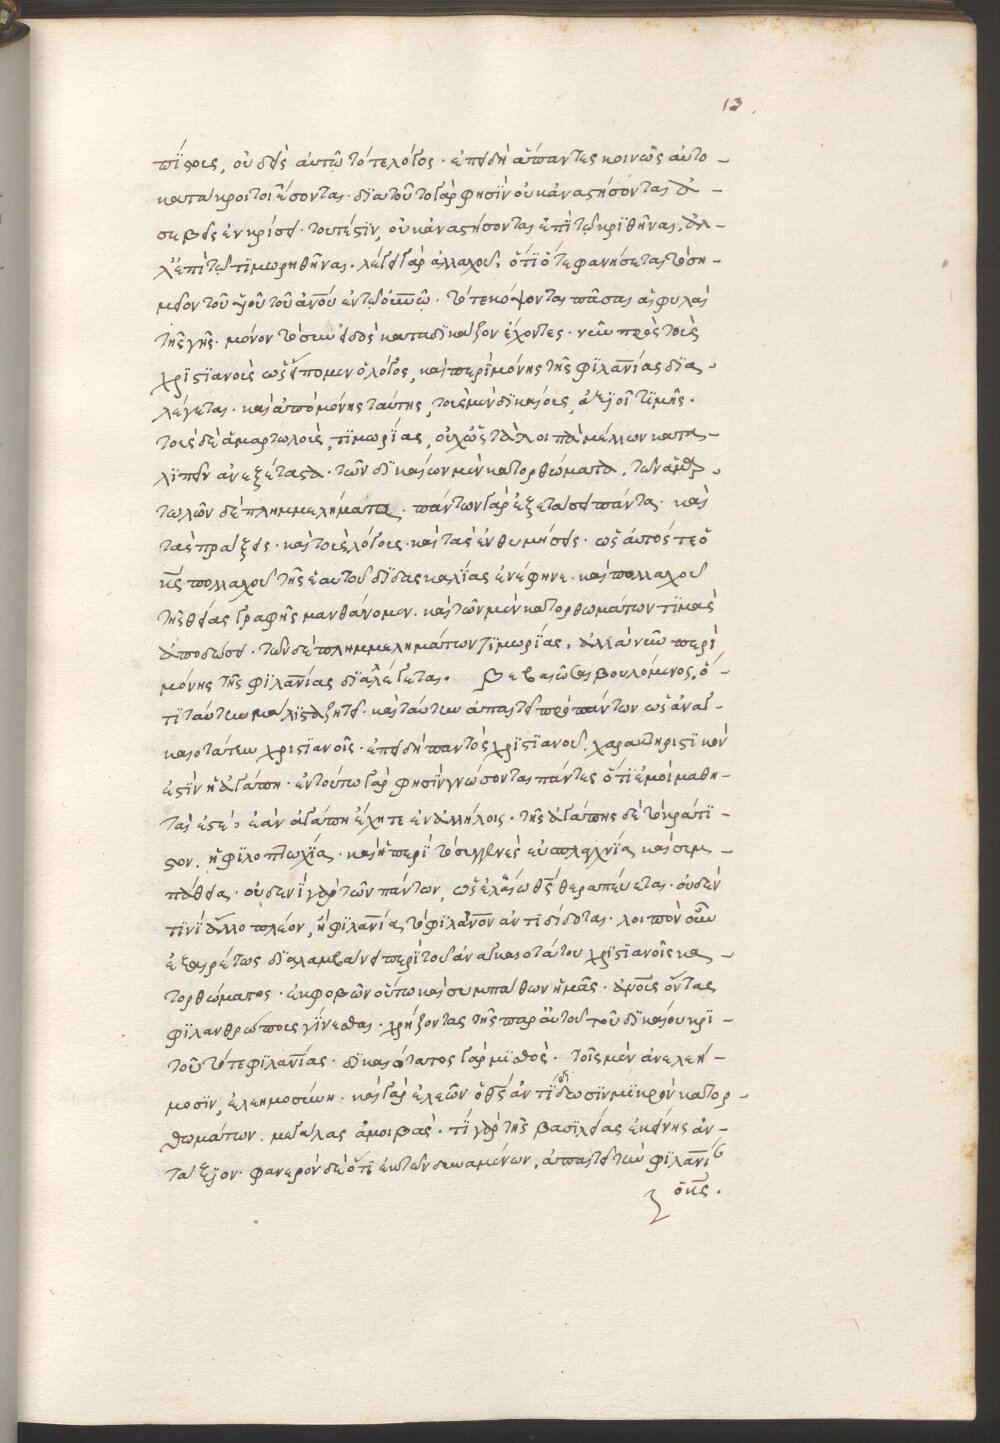 13
πίστοις, οὐδεὶς αὐτῷ τότε λόγος · ἐπειδὴ ἅπαντες κοινῶς αὐτο-
κατάκριτοι ἔσονται · διὰ τοῦτο γάρ φησιν οὐκ ἀναστήσονται ἀ-
σεβεῖς ἐν κρίσει · τουτέστιν, οὐκ ἀναστήσονται ἐπὶ τῷ κριθῆναι, ἀλ-
λ' ἐπὶ τῷ τιμωρηθῆναι · λέγει γὰρ ἀλλαχοῦ, ὅτι ὅτε φανήσεται τὸ ση-
μεῖον τοῦ υἱοῦ τοῦ ἀνου ἐν τῷ οὐνῷ · τότε κόψονται πᾶσαι αἱ φυλαὶ
τῆς γῆς · μόνον τὸ συνειδὸς καταδικάζον ἔχοντες · νῦν πρὸς τοὺς
χριστιανοὺς ὡς εἴπομεν ὁ λόγος, καὶ περὶ μόνης τῆς φιλανίας δια-
λέγεται · καὶ ἀπὸ μόνης ταύτης, τοὺς μὲν δικαίους, ἀξιοῖ τιμῆς ·
τοὺς δὲ ἁμαρτωλοὺς, τιμωρίας, οὐχ ὡς τὰ λοιπὰ μέλλων κατα-
λιπεῖν ἀνεξέταστα · τῶν δικαίων μὲν κατορθώματα, τῶν ἁμαρ-
τωλῶν δὲ πλημμελήματα · πάντων γὰρ ἐξετάσει πάντα · καὶ
τὰς πράξεις · καὶ τοὺς λόγους · καὶ τὰς ἐνθυμήσεις · ὡς αὐτός τε ὁ
κς πολλαχοῦ τῆς ἑαυτοῦ διδασκαλίας ἐνέφηνε · καὶ πολλαχοῦ
τῆς θείας γραφῆς μανθάνομεν · καὶ τῶν μὲν κατορθωμάτων τιμὰς
ἀποδώσει · τῶν δὲ πλημμελημάτων τιμωρίας, ἀλλὰ νῦν περὶ
μόνης τῆς φιλανίας διαλέγεται · βεβαιῶσαι βουλόμενος, ὅ-
τι ταύτην μάλιστα ζητεῖ · καὶ ταύτην ἀπαιτεῖ πρὸ πάντων ὡς ἀναγ-
καιοτάτην χριστιανοῖς · ἐπειδὴ παντὸς χριστιανοῦ, χαρακτηριστικόν
ἐστιν ἡ ἀγάπη · ἐν τούτῳ γάρ φησιν γνώσονται πάντες ὅτι ἐμοὶ μαθη-
ταί ἐστε, ἐὰν ἀγάπην ἔχητε ἐν ἀλλήλοις · τῆς ἀγάπης δὲ τὸ κράτι-
στον, ἡ φιλοπτωχία · καὶ ἡ περὶ τὸ συγγενὲς εὐσπλαγχνία καὶ συμ-
πάθεια · οὐδενὶ γὰρ τῶν πάντων, ὡς ἐλέῳ θς θεραπεύεται · οὐδέν
τινι ἄλλο πλέον, ἢ φιλανία, τὸ φιλάνον ἀντιδίδοται · λοιπὸν οὖν
ἐξαιρέτως διαλαμβάνει περὶ τοῦ ἀναγκαιοτάτου χριστιανοῖς κα-
τορθώματος · ἐκφοβῶν οὕτω καὶ συμπαθῶν ἡμᾶς · ἀνους ὄντας
φιλανθρώπους γίνεσθαι · χρήζοντας τῆς παρ' αὐτοῦ τοῦ δικαίου κρι-
τοῦ τότε φιλανίας · δικαιότατος γὰρ μισθὸς, τοῖς μὲν ἀνελεή-
μοσιν, ἐλεημοσύνη · καὶ γὰρ ἐλεῶν ὁ θς ἀντιδίδωσιν μικρῶν κατορ-
θωμάτων, μεγάλας ἀμοιβάς · τί γὰρ τῆς βασιλείας ἐκείνης ἀν-
τάξιον · φανερὸν δὲ ὅτι ἐκ τῶν δυναμένων, ἀπαιτεῖ τὴν φιλανί
ὁ κς ·